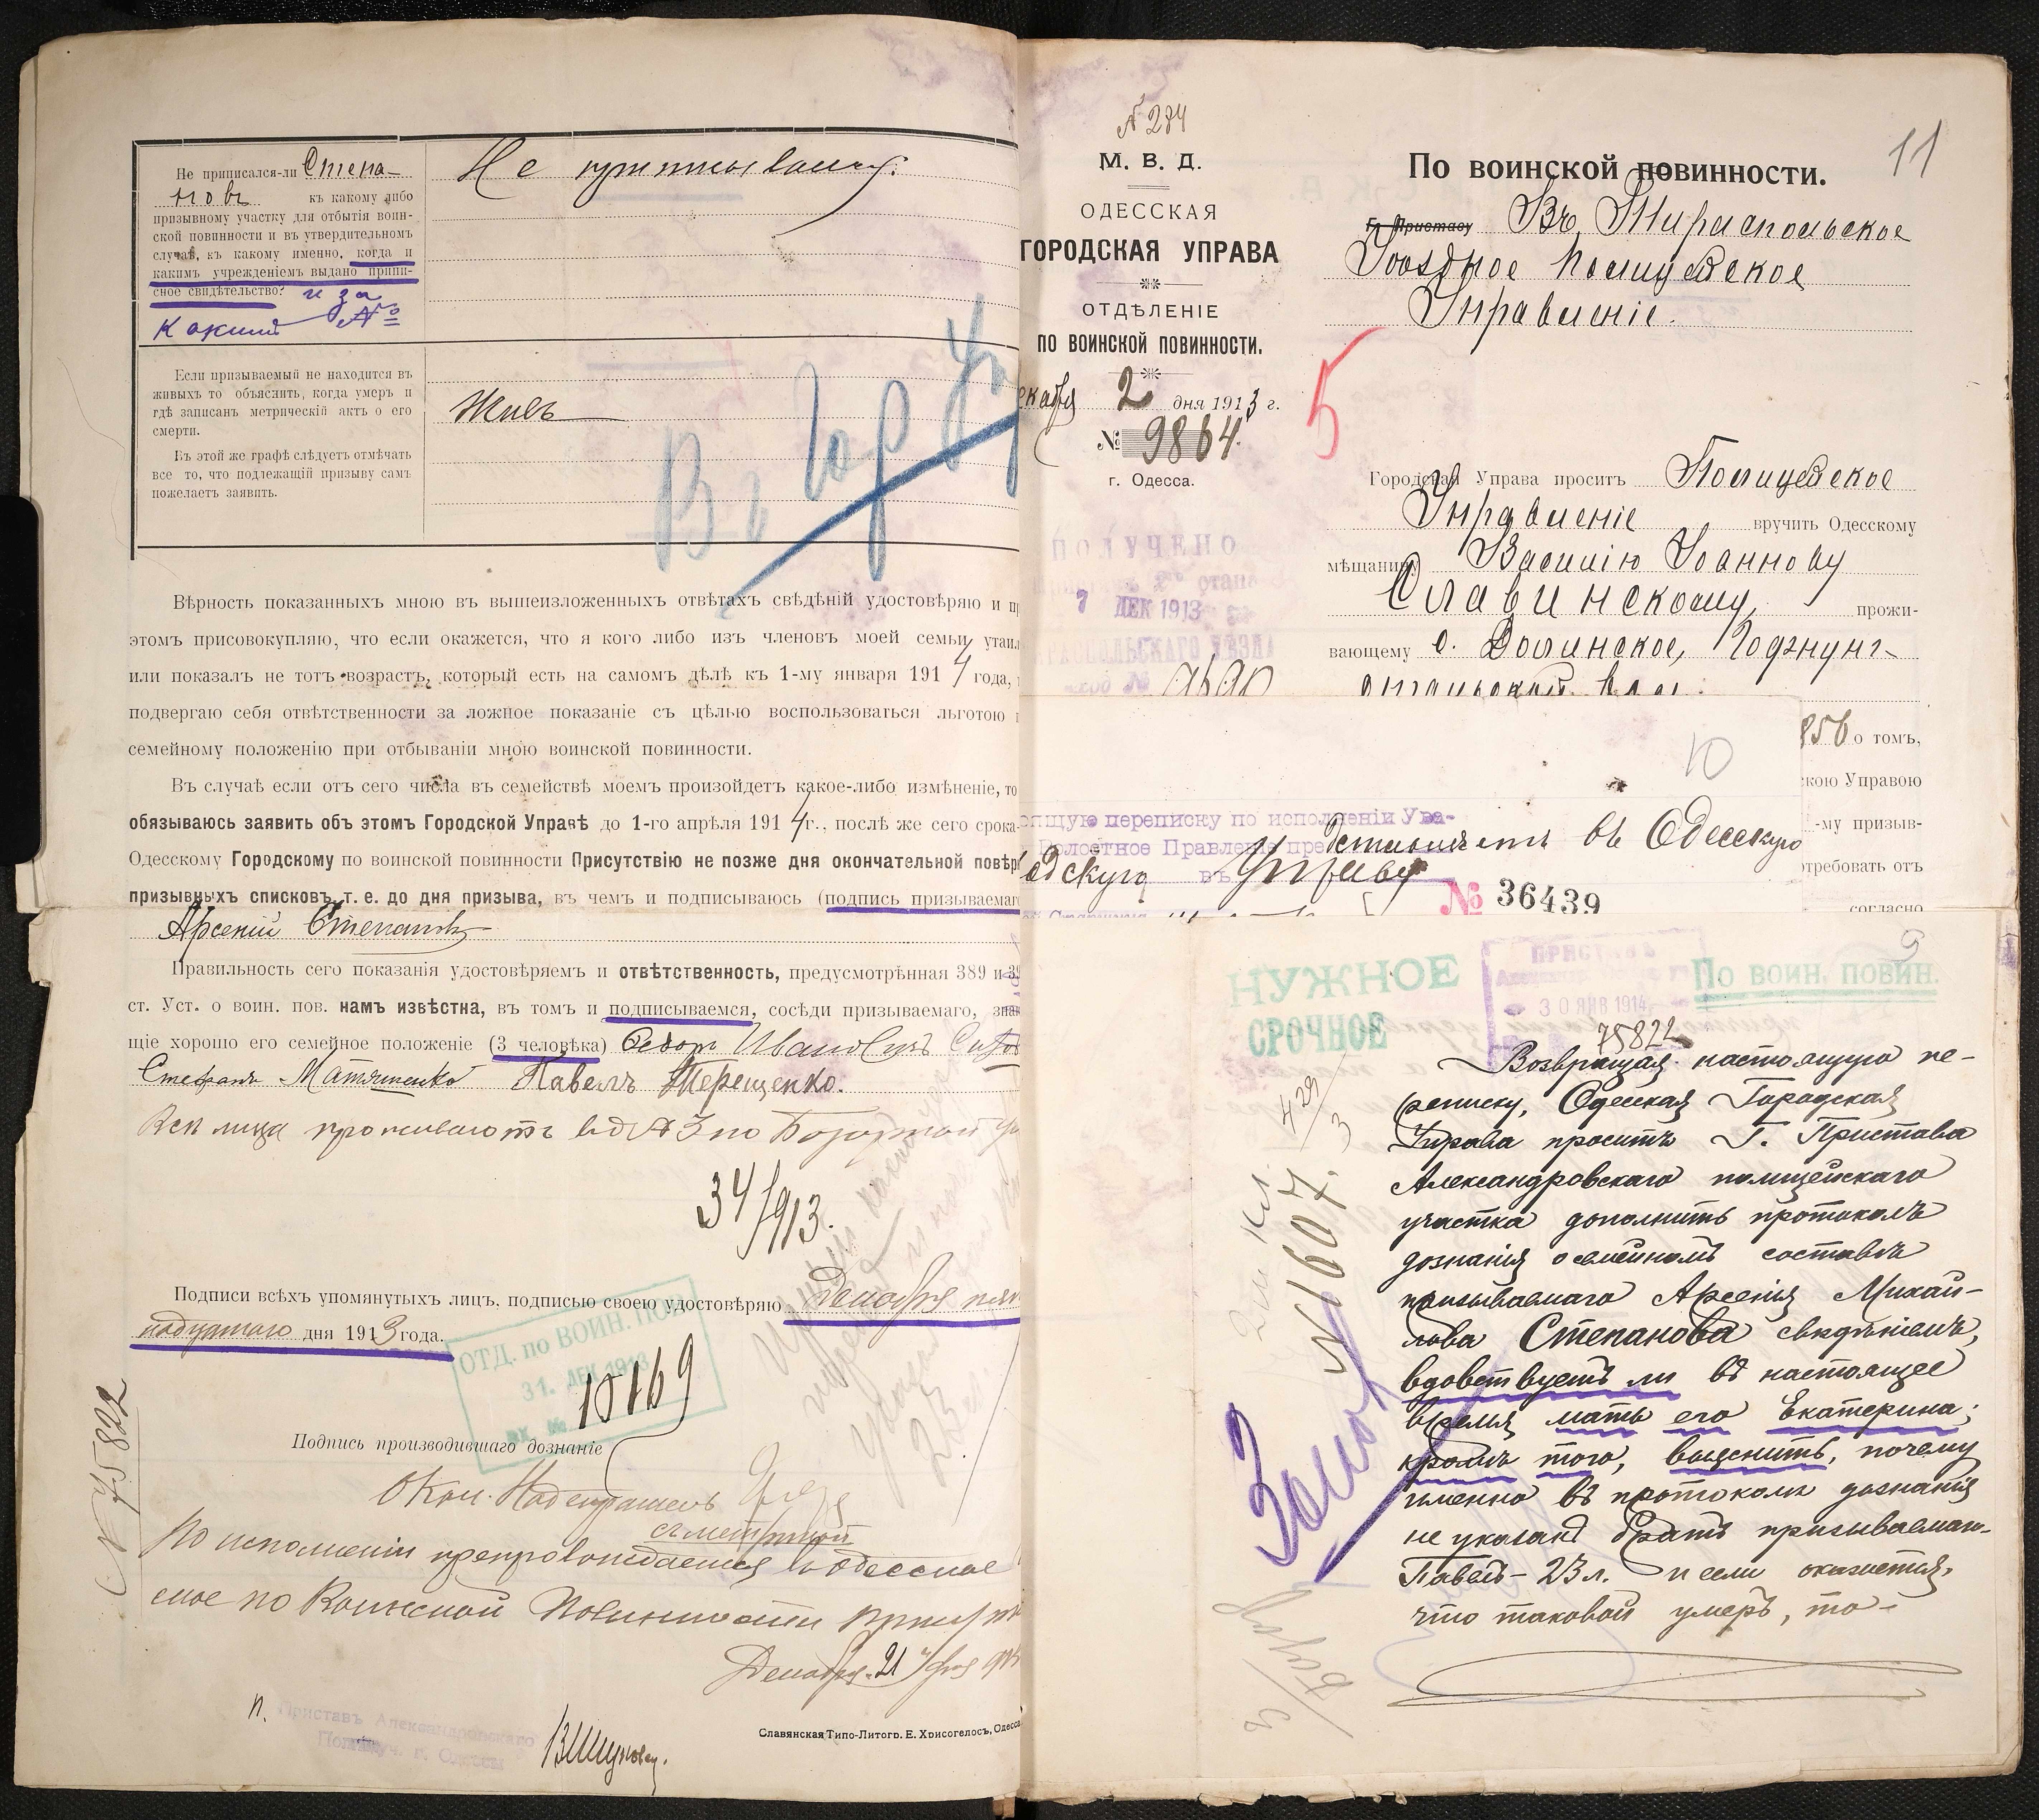 Не приписался-ли Степа-
новъ къ какому либо
призывному участку для отбытія воин-
ской повинности и въ утвердительномъ
случаѣ, къ какому именно, когда и
какимъ учрежденіемъ выдано припи-
сное свидѣтельство? и за
какимъ №
Не приписывался.
Если призываемый не находится въ
живыхъ то объяснить, когда умеръ и
гдѣ записанъ метрическій актъ о его
смерти.
Въ этой же графѣ слѣдуетъ отмѣчать
все то, что подлежащій призыву самъ
пожелаетъ заявить.
Живъ
Вѣрность показанныхъ мною въ вышеизложенныхъ отвѣтахъ свѣдѣній удостовѣряю и пр
этомъ присовокупляю, что если окажется, что я кого либо изъ членовъ моей семьи утаил
или показалъ не тотъ возрастъ, который есть на самомъ дѣлѣ къ 1-му января 1914 года,
подвергаю себя отвѣтственности за ложное показаніе съ цѣлью воспользоваться льготою п
семейному положенію при отбываніи мною воинской повинности.
Въ случаѣ если отъ сего числа въ семействѣ моемъ произойдетъ какое-либо измѣненіе, то
обязываюсь заявить объ этомъ Городской Управѣ до 1-го апрѣля 1914 г., послѣ же сего срока-
Одесскому Городскому по воинской повинности Присутствію не позже дня окончательной повѣр
призывныхъ списковъ, т. е. до дня призыва, въ чемъ и подписываюсь (подпись призываемаг
Арсеній Степановъ
Правильность сего показанія удостовѣряемъ и отвѣтственность, предусмотрѣнная 389 и 39
ст. Уст. о воин. пов. намъ извѣстна, въ томъ и подписываемся, сосѣди призываемаго, знак
щіе хорошо его семейное положеніе (3 человѣка) Федоръ Ивановичъ
Стефанъ Матяшенко Павелъ Терещенко.
Всѣ лица проживаютъ въ д № 3 по
34/913.
Подписи всѣхъ упомянутыхъ лицъ, подписью своею удостовѣряю Декабря пят
надцатаго дня 1913 года.
ОТД. по ВОИН. ПОВ.
31. ДЕК 1913
вх. № 10169
Подпись производившаго дознаніе
Окол. Надзиратель
По исполненіи препровождается въ Одесское
ское по Воинской Повинности
Декабря 21 дня
№ 75822
п. Приставъ Александровскаго
Полиц. уч. г. Одессы
Славянская Типо-Литогр. Е. Хрисогелосъ, Одесса
№ 284
М. В. Д.
ОДЕССКАЯ
ГОРОДСКАЯ УПРАВА
ОТДѢЛЕНІЕ
ПО ВОИНСКОЙ ПОВИННОСТИ.
екабря 2 дня 1913 г.
№ 9864.
г. Одесса.
ПОЛУЧЕНО
стана
7 ДЕК 1913
РАСПОЛЬСКАГО УѢЗДА
11
По воинской повинности.
Г. Приставу Въ Тираспольское
Уѣздное Полицейское
Управленіе.
5
Городская Управа проситъ Полицейское
Управленіе вручить Одесскому
мѣщанину Василію Іоаннову
Славинскому, прожи-
вающему с. Долинское,
856 о томъ,
скою Управою
-му призыв-
отребовать отъ
согласно
10
ящую переписку по исполненіи Ува-
Волостное Правленіе пре доставляетъ въ Одесскую
одскую въ Управу
№ 36439
9
НУЖНОЕ
СРОЧНОЕ
ПРИСТАВЪ
30 ЯНВ 1914
По воин. повин.
75822
Возвращая настоящую пе-
реписку, Одесская Городская
Управа проситъ Г. Пристава
Александровскаго полицейскаго
участка дополнить протоколъ
дознанія о семейномъ составѣ
призываемаго Арсенія Михай-
лова Степанова свѣдѣніемъ,
вдовствуетъ ли въ настоящее
время мать его Екатерина;
кромѣ того, выяснить, почему
именно въ протоколѣ дознанія
не указанъ братъ призываемаго-
Павелъ - 23 л. и если окажется,
что таковой умеръ, то-
№ 1607.
429/3